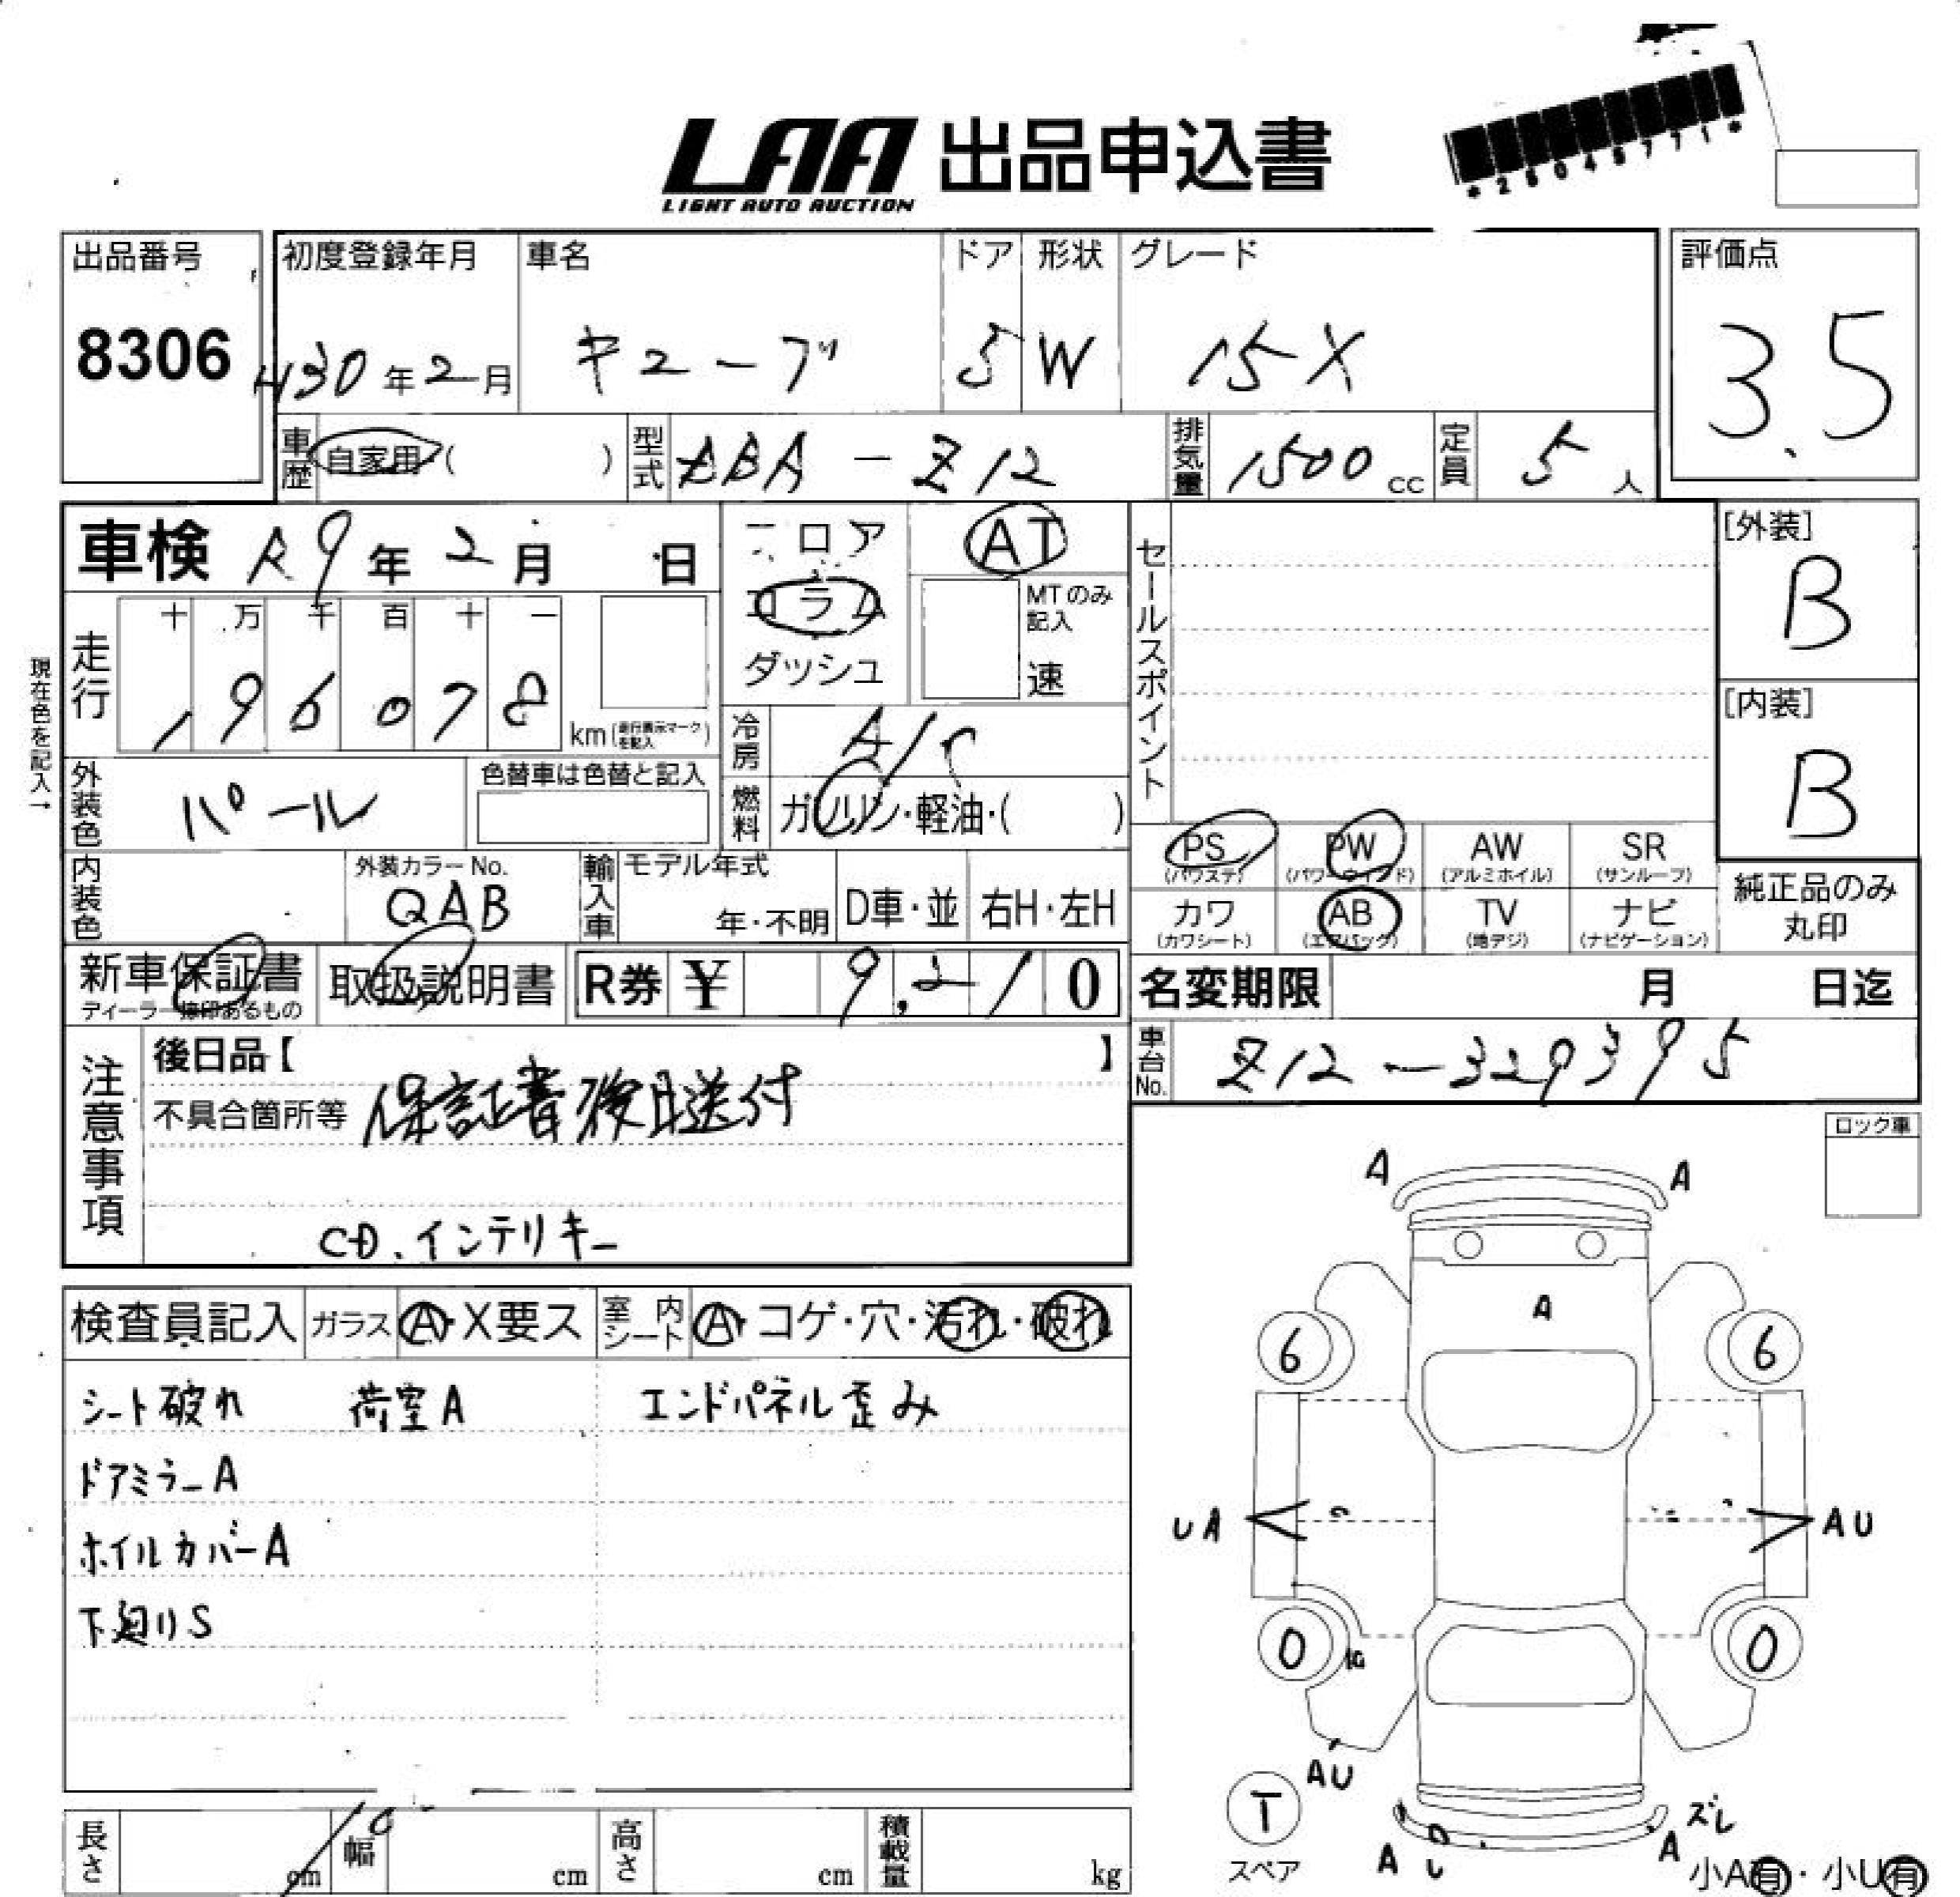 LAA 出品申込書
LIGHT AUTO AUCTION
*25045771*
出品番号
8306
初度登録年月
H30年2月
車名
キューブ
ドア
5
形状
W
グレード
15X
評価点
3.5
車歴 自家用・( )
型式 DBA-Z12
排気量 1500cc
定員 5人
車検 R9年2月 日
フロア
コラム
ダッシュ
AT
MTのみ記入
速
セールスポイント
[外装]
B
[内装]
B
現在色を記入→
走行
十 万 千 百 十 一
196078
km(走行表示マークを記入)
冷房 A/C
外装色 パール
色替車は色替と記入
燃料 ガソリン・軽油・( )
内装色
外装カラーNo.
QAB
輸入車
モデル年式
年・不明
D車・並
右H・左H
PS
(パワステ)
PW
(パワーウィンド)
AW
(アルミホイル)
SR
(サンルーフ)
カワ
(カワシート)
AB
(エアバッグ)
TV
(地デジ)
ナビ
(ナビゲーション)
純正品のみ
丸印
新車保証書
ディーラー捺印あるもの
取扱説明書
R券 ¥ 9,210
名変期限 月 日迄
車台No. Z12-329395
注意事項
後日品【 】
不具合箇所等 保証書後日送付
CD、インテリキー
ロック車
検査員記入 ガラス A・X要ス
室内シート A・コゲ・穴・汚れ・破れ
シート破れ 荷室A エンドパネル歪み
ドアミラーA
ホイルカバーA
下廻りS
A A
A
6 6
UA AU
0 0
AU
T
スペア
ズレ
A U A
小A有・小U有
長さ cm
幅 cm
高さ cm
積載量 kg